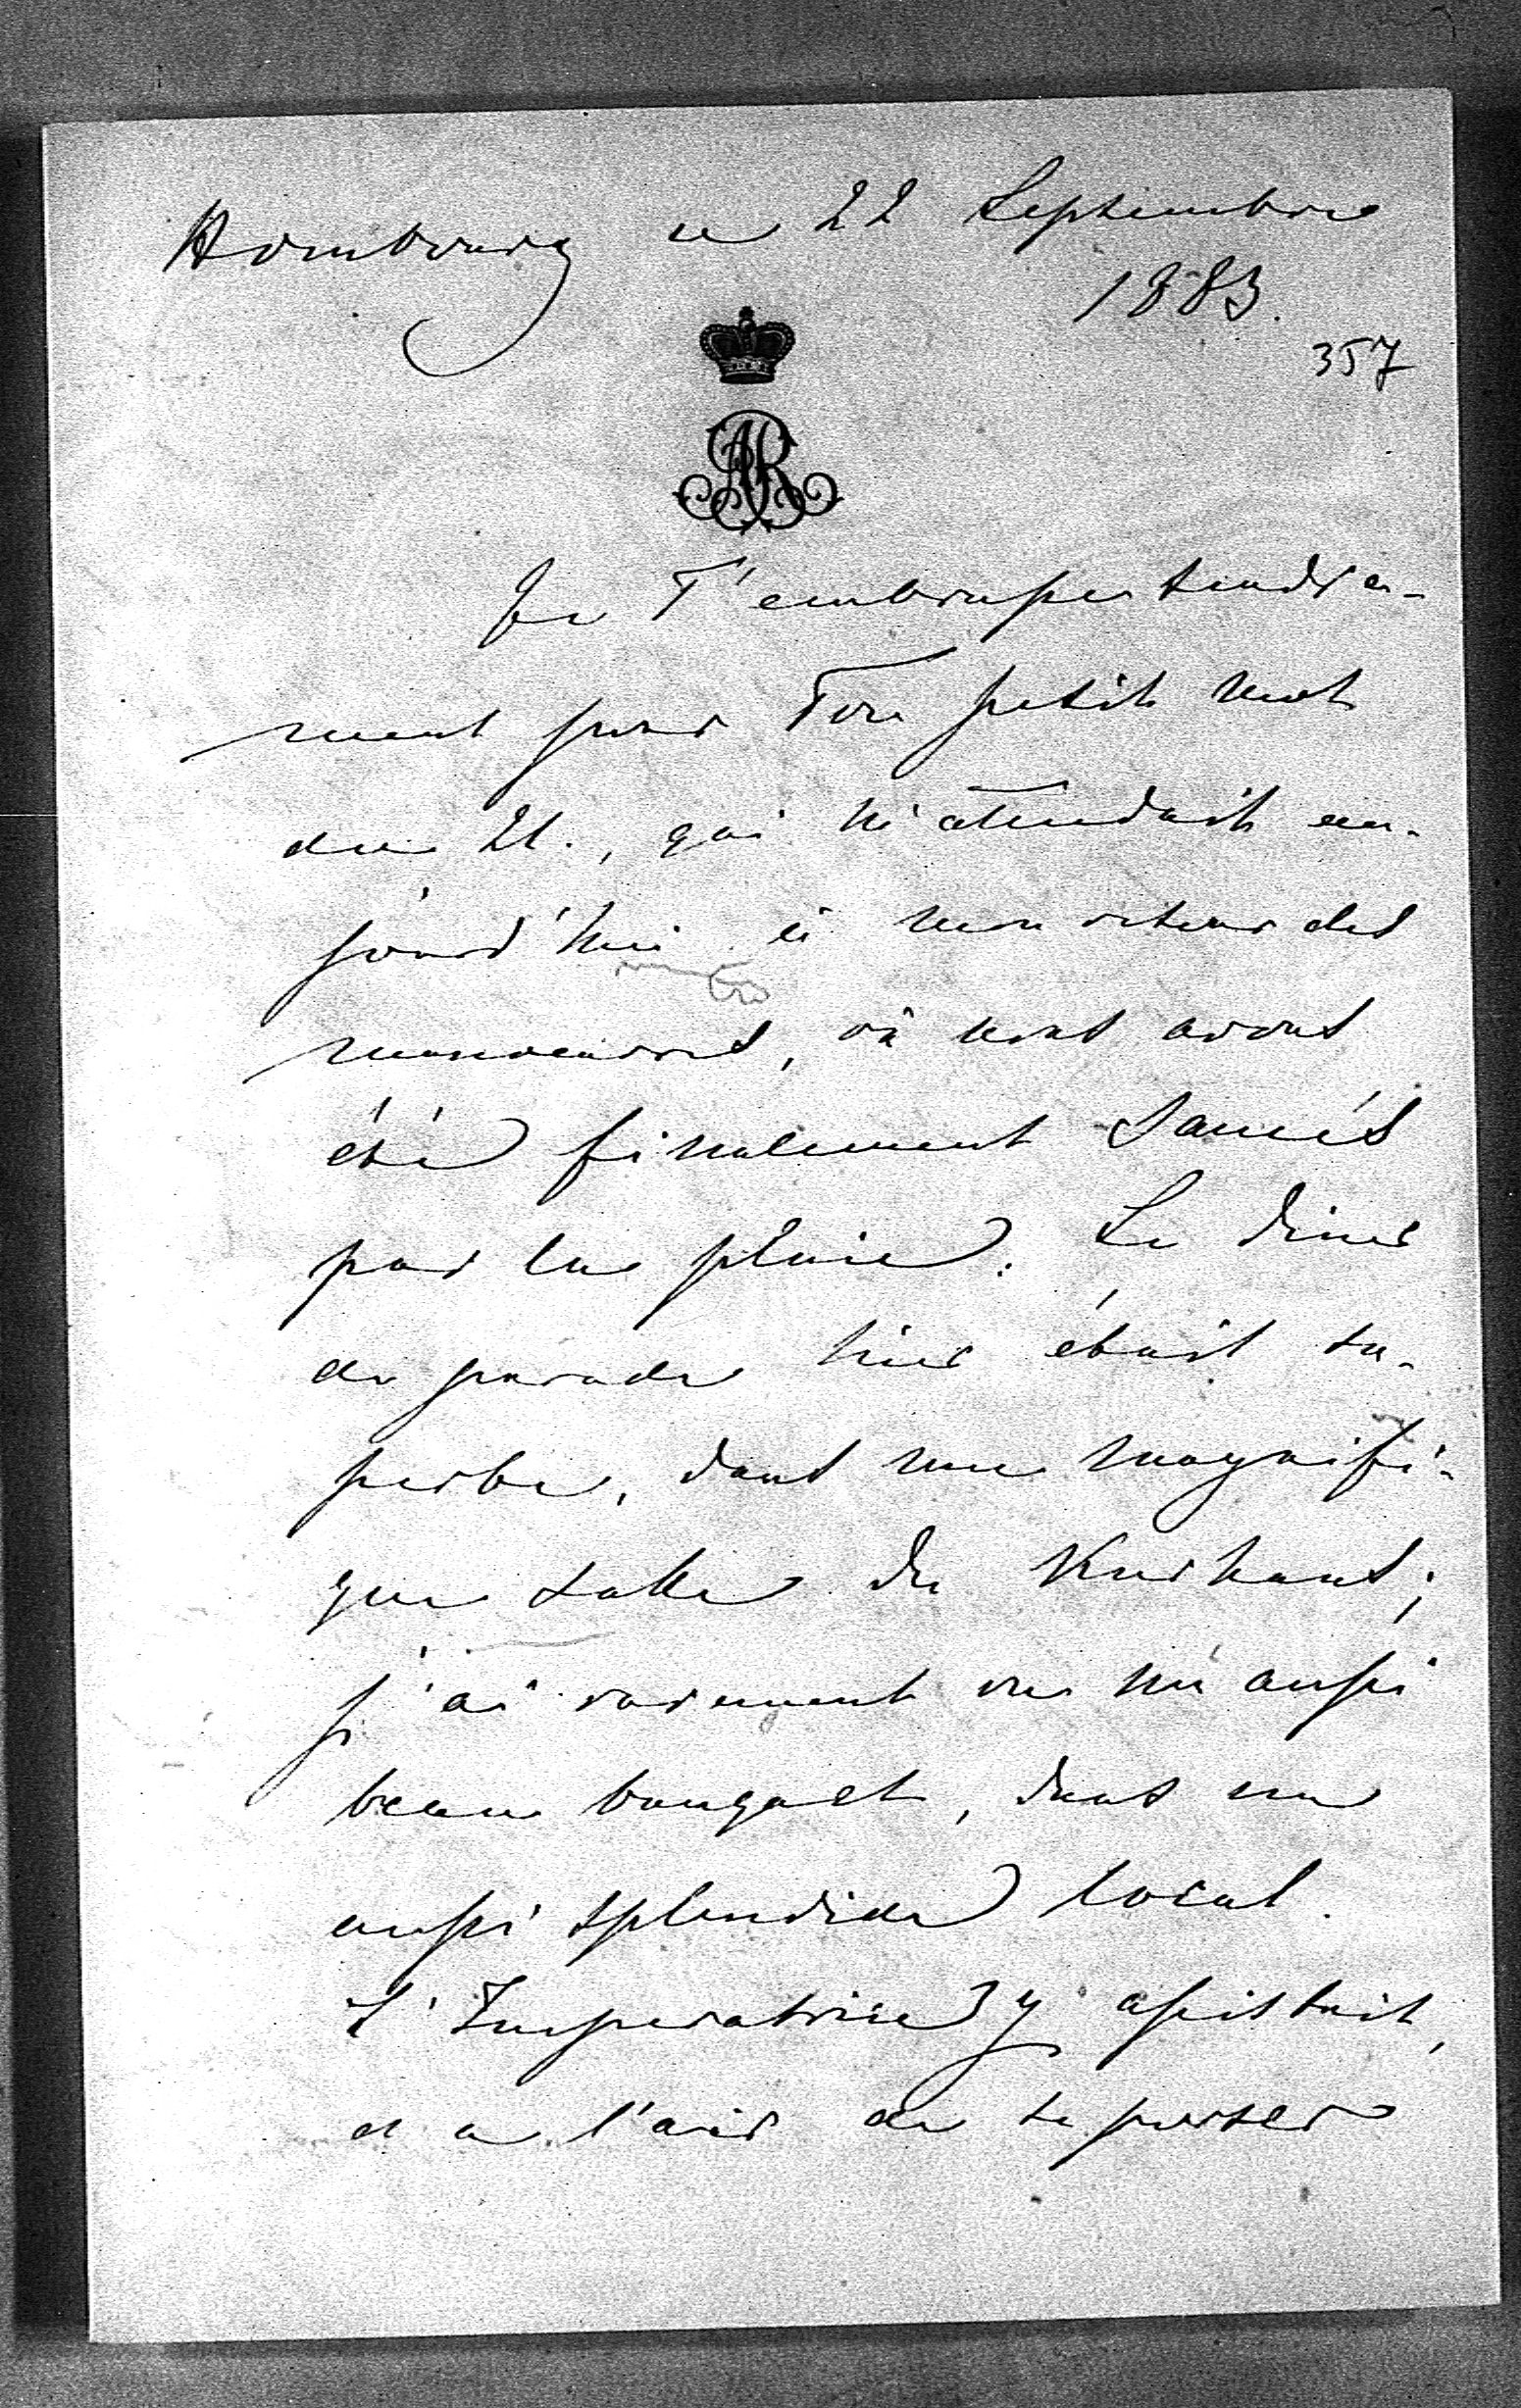 Hombourg ce 22 Septembre
1883.
357
AR
Je T'embrasse tendre-
ment pour Ton petit mot
du 21., qui m'attendait au-
jourd'hui à mon retour des
manoeuvres, où nous avons
été finalement saucés
par la pluie. Le diner
de parade hier était su-
perbe, dans une magnifi-
que salle du Kurhaus;
j'ai rarement vu un aussi
beau banquet, dans un
aussi splendide local.
L'Imperatrice y assistait,
et a l'air de se porter